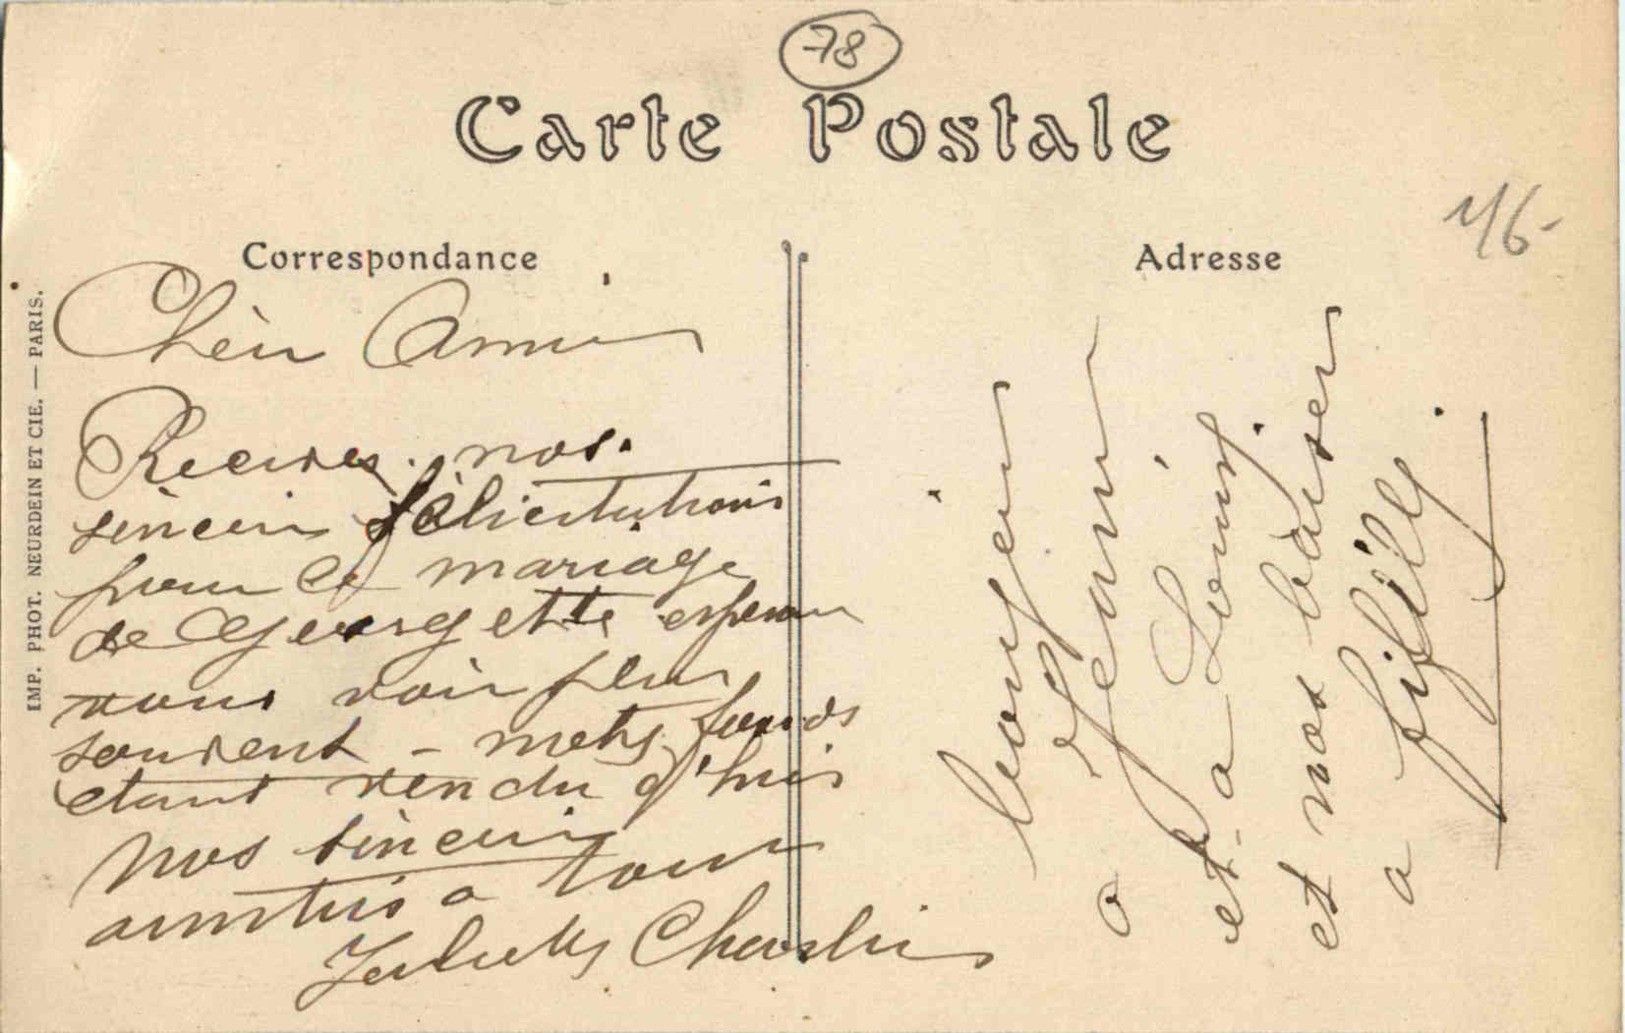 78
Carte Postale
1/6-
Correspondance
Adresse
IMP. PHOT. NEURDEIN ET CIE. — PARIS.
Chèr Amis
Recevez nos
sinceris félicitations
pour le mariage
de Georgette esperan
vous voir plus
souvent - mets fonds
etant vendu d'huis
Nos sinceris
amitiis a tous
Juliette Charlis
bonjour
a Jeanne
et a Louis
et nos baiser
a fifille